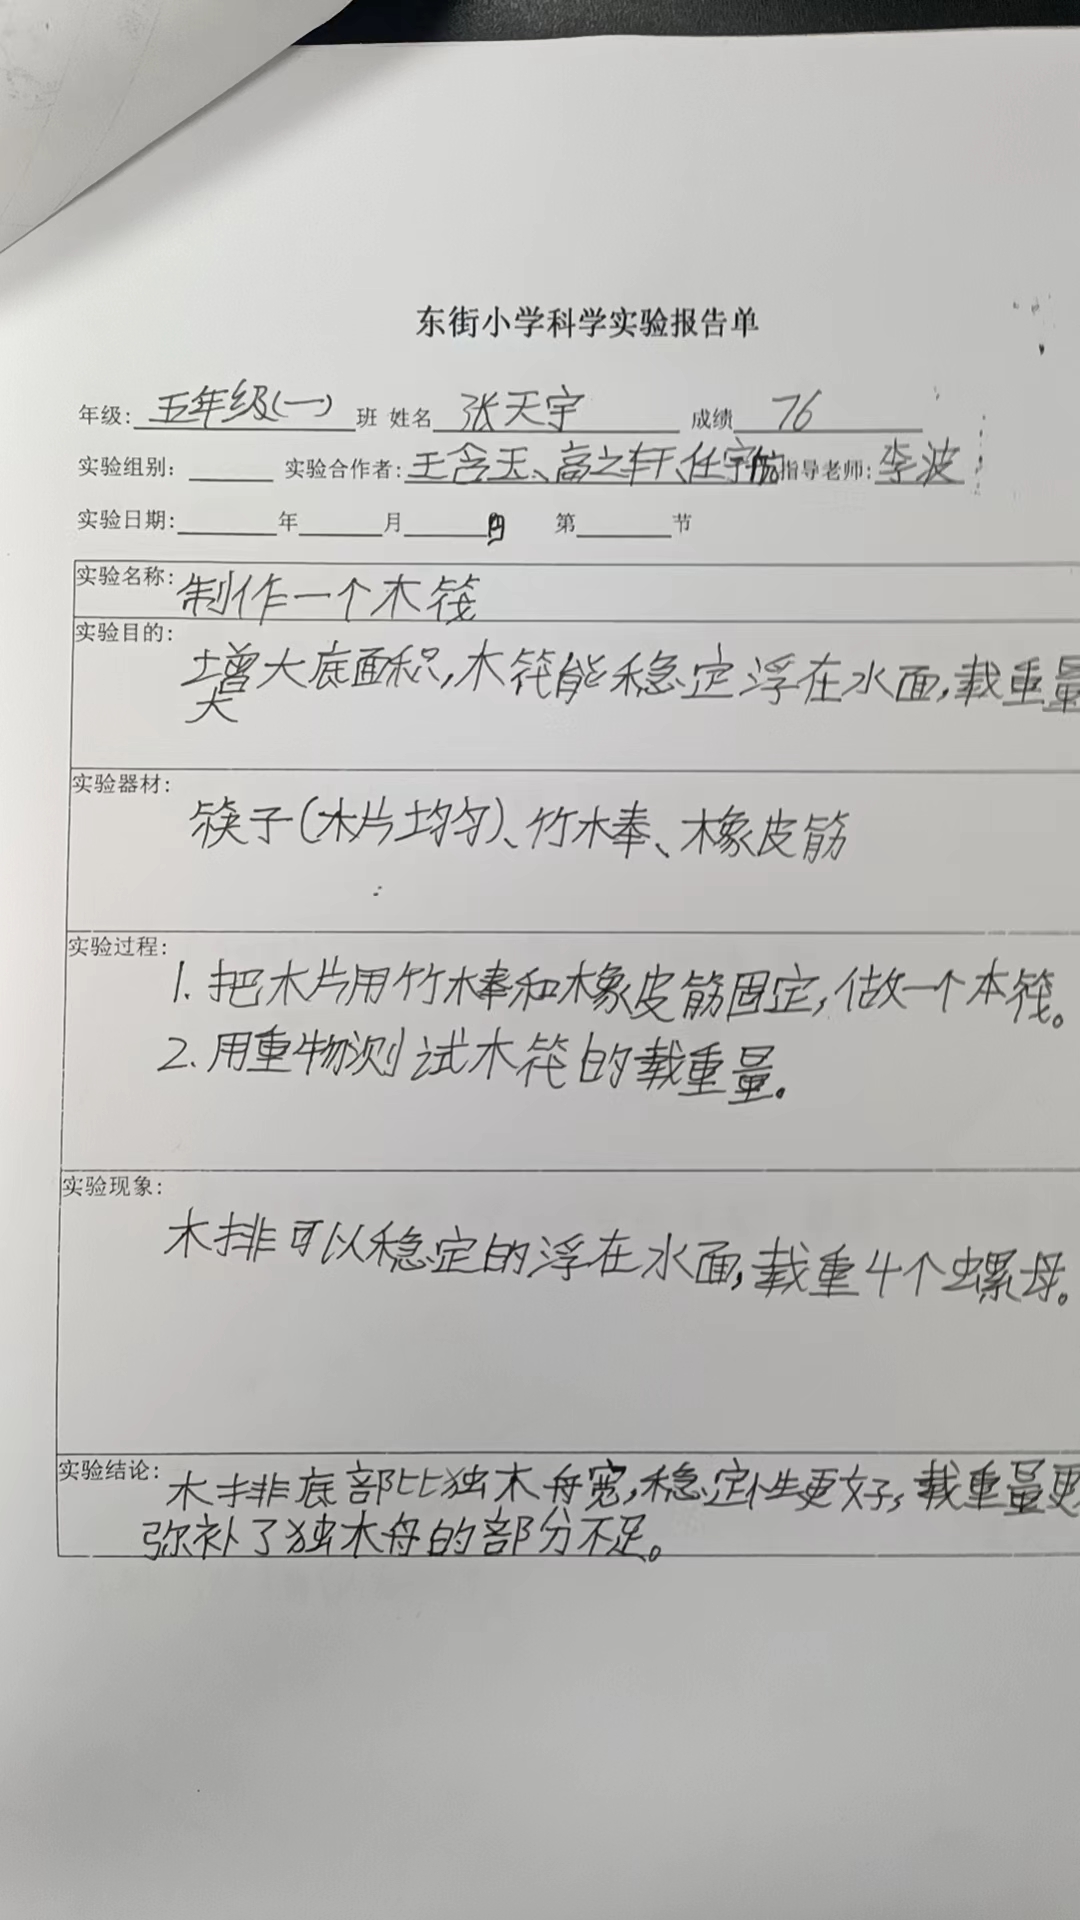 东街小学科学实验报告单
年级: 五年级(一) 班 姓名 张天宇 成绩 76
实验组别: 实验合作者: 王含玉、高之轩、任宇航 指导老师: 李波
实验日期: 年 月 日 第 节
实验名称: 制作一个木筏
实验目的:
增大底面积,木筏能稳定浮在水面,载重量
大
实验器材:
筷子(木片均匀)、竹木棒、橡皮筋
实验过程:
1. 把木片用竹木棒和橡皮筋固定,做一个木筏。
2. 用重物测试木筏的载重量。
实验现象:
木排可以稳定的浮在水面,载重4个螺母。
实验结论: 木排底部比独木舟宽,稳定性更好,载重量更
弥补了独木舟的部分不足。